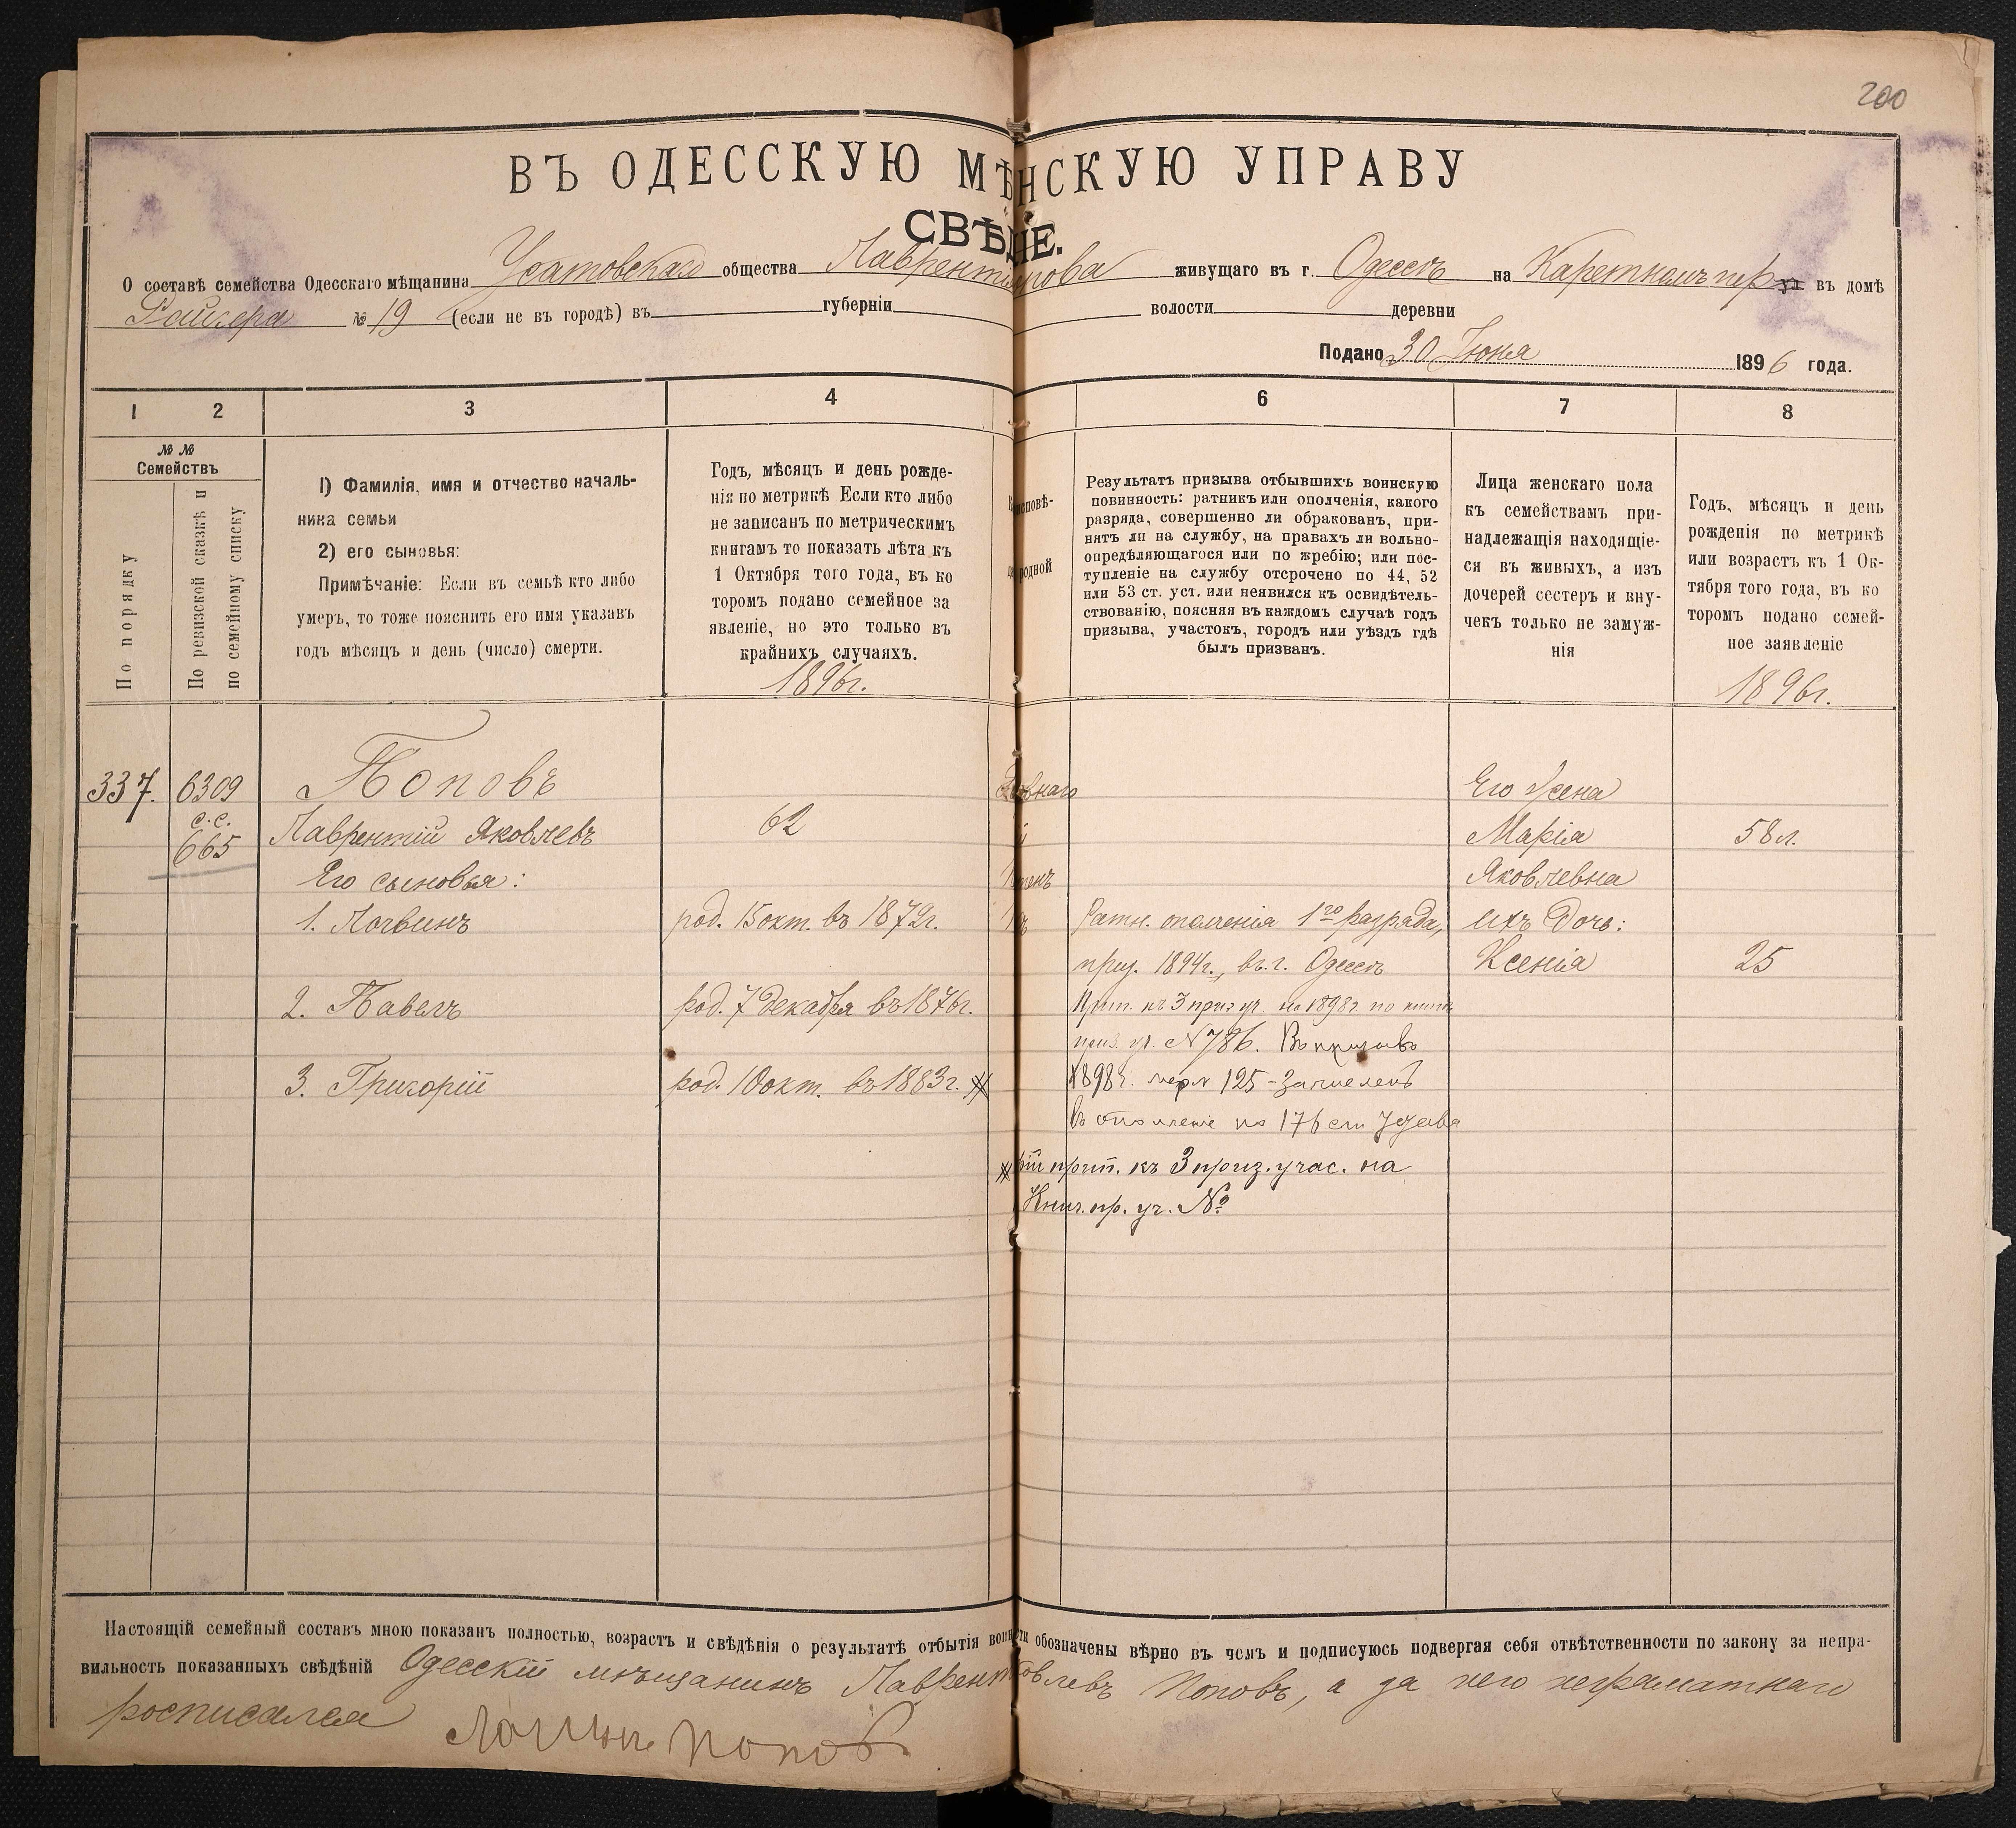 200
ВЪ ОДЕССКУЮ МѢ НСКУЮ УПРАВУ
СВѢ НІЕ.
О составѣ семейства Одесскаго мѣщанина Усатовскаго общества Лаврентія Попова живущаго въ г. Одессѣ на Каретномъ пер ул въ домѣ
№ 19 (если не въ городѣ) въ губерніи волости деревни
Подано 30 Іюня 1896 года.
1 2 3 4 6 7 8
№ №
Семействъ
По порядку
По ревизской сказкѣ и
по семейному списку
1) Фамилія, имя и отчество началь-
ника семьи
2) его сыновья:
Примѣчаніе: Если въ семьѣ кто либо
умеръ, то тоже пояснить его имя указавъ
годъ мѣсяцъ и день (число) смерти.
Годъ, мѣсяцъ и день рожде-
нія по метрикѣ Если кто либо
не записанъ по метрическимъ
книгамъ то показать лѣта къ
1 Октября того года, въ ко
торомъ подано семейное за
явленіе, но это только въ
крайнихъ случаяхъ.
1896г.
исповѣ-
родной
Результатъ призыва отбывшихъ воинскую
повинность: ратникъ или ополченія, какого
разряда, совершенно ли обракованъ, при-
нятъ ли на службу, на правахъ ли вольно-
опредѣляющагося или по жребію; или пос-
тупленіе на службу отсрочено по 44, 52
или 53 ст. уст. или неявился къ освидѣтель-
ствованію, поясняя въ каждомъ случаѣ годъ
призыва, участокъ, городъ или уѣздъ гдѣ
былъ призванъ.
Лица женскаго пола
къ семействамъ при-
надлежащія находящіе-
ся въ живыхъ, а изъ
дочерей сестеръ и вну-
чекъ только не замуж-
нія
Годъ, мѣсяцъ и день
рожденія по метрикѣ
или возрастъ къ 1 Ок-
тября того года, въ ко
торомъ подано семей-
ное заявленіе
1896г.
337. 6309 Поповъ Его жена
с.с.
665 Лаврентій Яковлевъ 62 Марія 58 л.
Его сыновья: Яковлевна
1. Логвинъ род. 15 окт. въ 1872г. Ратн. ополченія 1го разряда, ихъ Дочь:
приз. 1894г., въ г. Одессѣ Ксенія 25
2. Павелъ род. 7 декабря въ 1876г. Прип. къ 3 приз уч. на 1898г. по книг
приз. уч. № 786. Въ призывъ
3. Григорій род. 10 окт. въ 1883г. ※ 1898г. 125 - Зачисленъ
въ ополченіе по 176 ст. Устава
※ прип. къ 3 приз. учас. на
Книг. пр. уч. №
Настоящій семейный составъ мною показанъ полностью, возрастъ и свѣдѣнія о результатѣ отбытія воин сти обозначены вѣрно въ чемъ и подписуюсь подвергая себя отвѣтственности по закону за непра-
вильность показанныхъ свѣдѣній Одесскій мѣщанинъ Лаврент ковлевъ Поповъ, а за него неграматнаго
росписался Логвинъ Попов